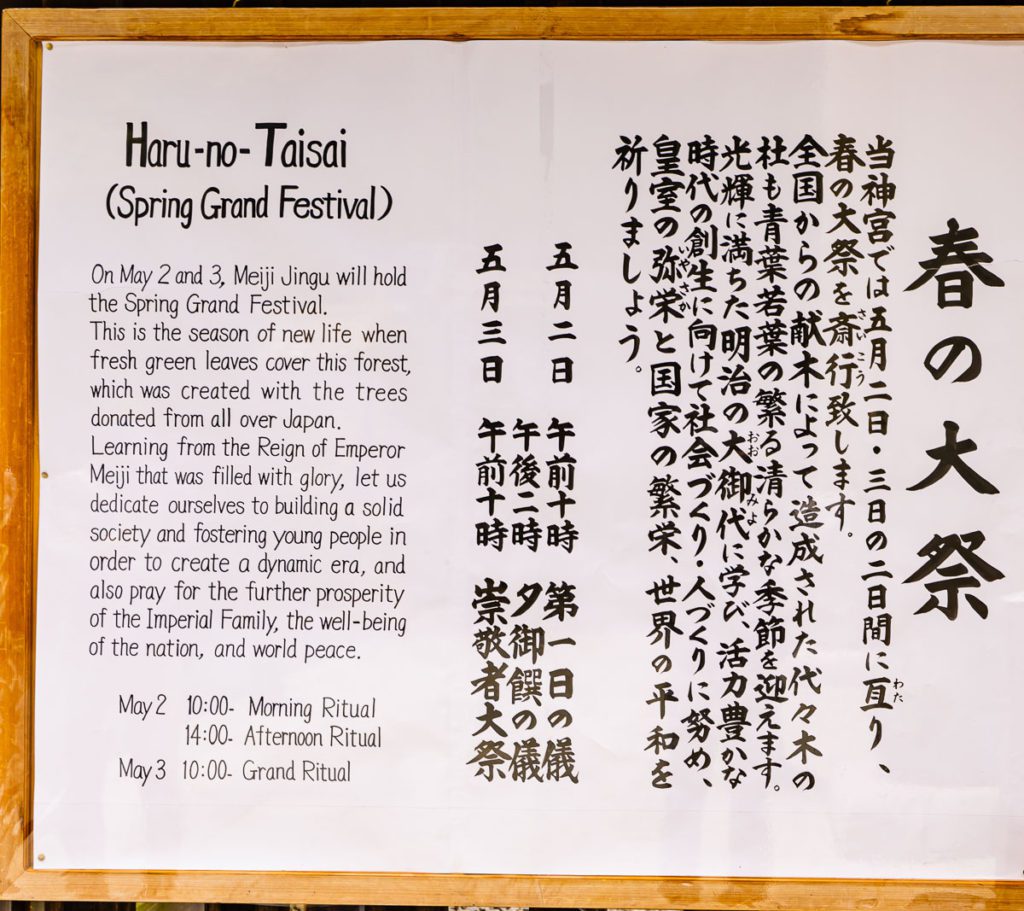 春の大祭
当神宮では五月二日・三日の二日間に亘り、
わた
春の大祭を斎行致します。
さいこう
全国からの献木によって造成された代々木の
杜も青葉若葉の繁る清らかな季節を迎えます。
光輝に満ちた明治の大御代に学び、活力豊かな
おおみよ
時代の創生に向けて社会づくり・人づくりに努め、
皇室の弥栄と国家の繁栄、世界の平和を
いやさか
祈りましょう。
五月二日 午前十時 第一日の儀
午後二時 夕御饌の儀
五月三日 午前十時 崇敬者大祭
Haru-no-Taisai
(Spring Grand Festival)
On May 2 and 3, Meiji Jingu will hold
the Spring Grand Festival.
This is the season of new life when
fresh green leaves cover this forest,
which was created with the trees
donated from all over Japan.
Learning from the Reign of Emperor
Meiji that was filled with glory, let us
dedicate ourselves to building a solid
society and fostering young people in
order to create a dynamic era, and
also pray for the further prosperity
of the Imperial Family, the well-being
of the nation, and world peace.
May 2 10:00- Morning Ritual
14:00- Afternoon Ritual
May 3 10:00- Grand Ritual